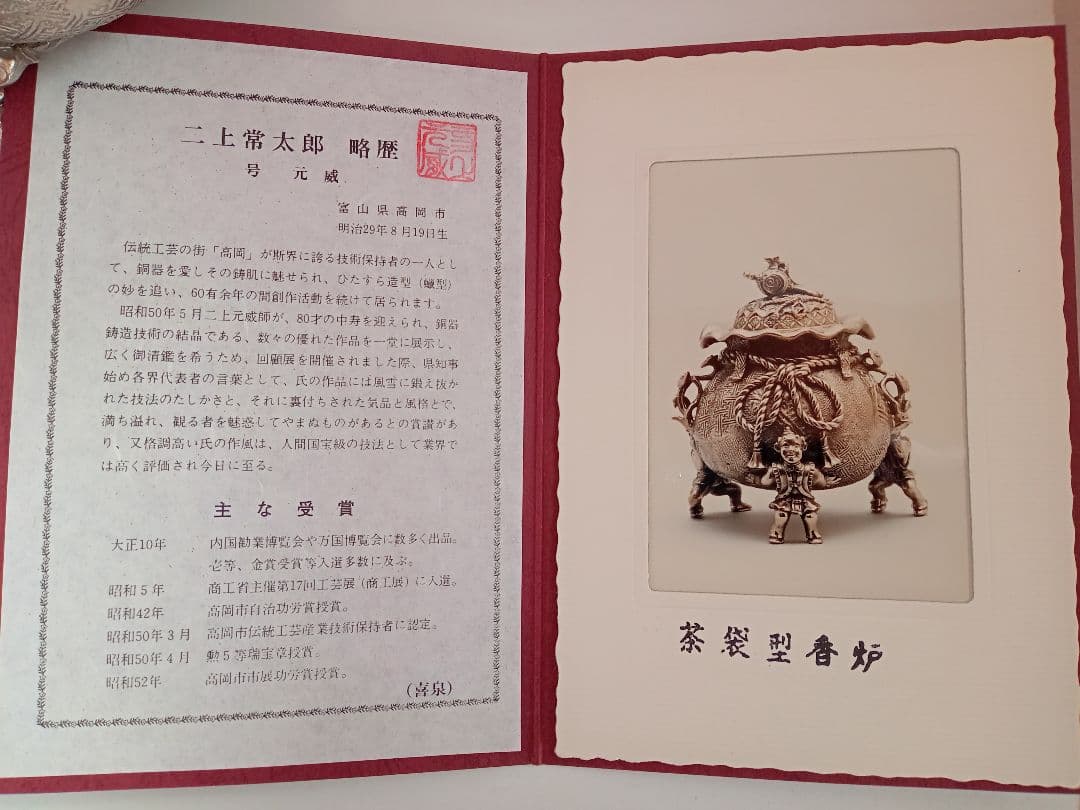 二上常太郎 略歴
号 元威
富山県高岡市
明治29年8月19日生
伝統工芸の街「高岡」が斯界に誇る技術保持者の一人とし
て、銅器を愛しその鋳肌に魅せられ、ひたすら造型(蠟型)
の妙を追い、60有余年の間創作活動を続けて居られます。
昭和50年5月二上元威師が、80才の中寿を迎えられ、銅器
鋳造技術の結晶である、数々の優れた作品を一堂に展示し、
広く御清鑑を希うため、回顧展を開催されました際、県知事
始め各界代表者の言葉として、氏の作品には風雪に鍛え抜か
れた技法のたしかさと、それに裏付ちされた気品と風格とで、
満ち溢れ、観る者を魅惑してやまぬものがあるとの賞讃があ
り、又格調高い氏の作風は、人間国宝級の技法として業界で
は高く評価され今日に至る。
主な受賞
大正10年 内国勧業博覧会や万国博覧会に数多く出品。
壱等、金賞受賞等入選多数に及ぶ。
昭和5年 商工省主催第17回工芸展(商工展)に入選。
昭和42年 高岡市自治功労賞授賞。
昭和50年3月 高岡市伝統工芸産業技術保持者に認定。
昭和50年4月 勲5等瑞宝章授賞。
昭和52年 高岡市市展功労賞授賞。
(喜泉)
茶袋型香炉